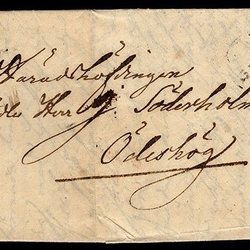 Häradshöfdingen
Herr Söderholm
Ödeshög